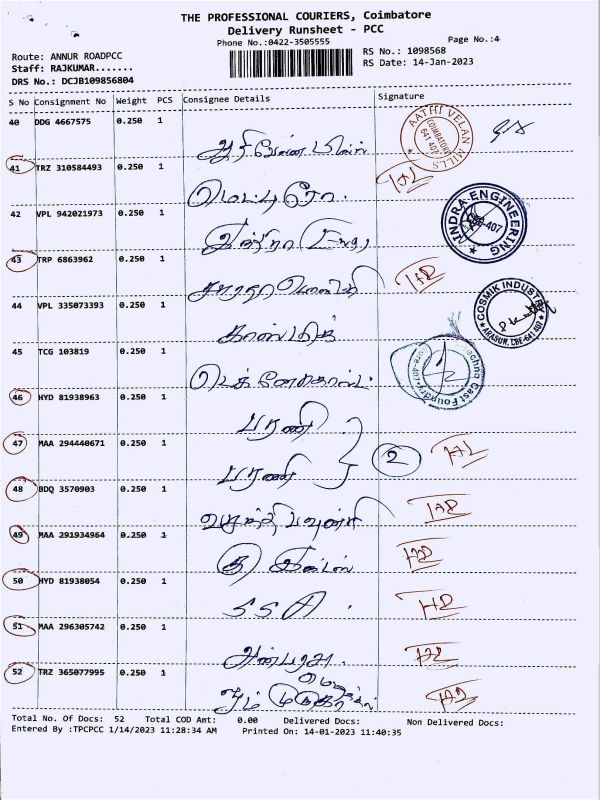 THE PROFESSIONAL COURIERS, Coimbatore
Delivery Runsheet - PCC
Phone No.:0422-3505555
Page No.:4
Route: ANNUR ROADPCC
RS No.: 1098568
Staff: RAJKUMAR.......
RS Date: 14-Jan-2023
DRS No.: DCJB109856804
S No Consignment No Weight PCS Consignee Details Signature
40 DDG 4667575 0.250 1
AATHI VELAN MILLS COIMBATORE 641 407
41 TRZ 310584493 0.250 1
மெட்ரோ
42 VPL 942021973 0.250 1
இந்திரா Eng
INDRA ENGINEERING CBE-407
43 TRP 6863962 0.250 1
44 VPL 335073393 0.250 1
காஸ்மிக்
COSMIK INDUSTRY ARASUR, CBE-641 407
45 TCG 103819 0.250 1
Techno Cast Foundry
46 HYD 81938963 0.250 1
பரணி
47 MAA 294440671 0.250 1
பரணி 2
48 BDQ 3570903 0.250 1
49 MAA 291934964 0.250 1
50 HYD 81938054 0.250 1
SSA
51 MAA 296305742 0.250 1
அன்பரசு
52 TRZ 365077995 0.250 1
ஓம் முருகா
Total No. Of Docs: 52 Total COD Amt: 0.00 Delivered Docs: Non Delivered Docs:
Entered By :TPCPCC 1/14/2023 11:28:34 AM Printed On: 14-01-2023 11:40:35